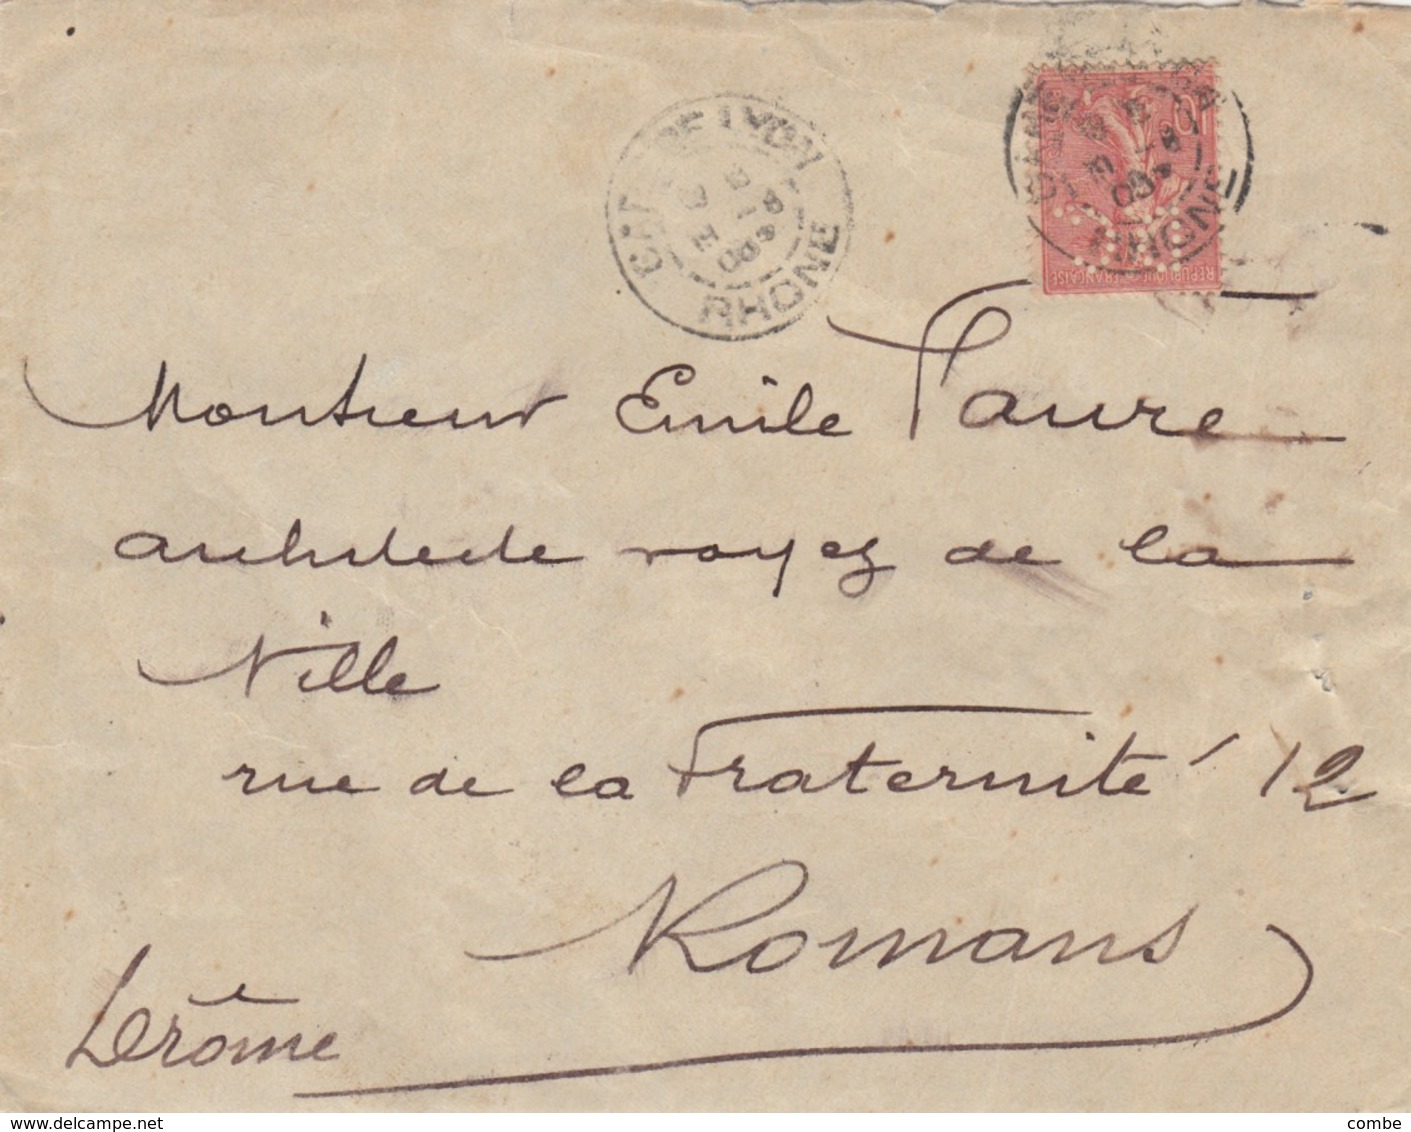 GARE DE LYON
RHONE
10
RHONE
REPUBLIQUE FRANÇAISE
Monsieur Emile Faure
architecte voyer de la
Ville
rue de la Fraternité 12
Romans
Drôme
www.delcampe.net
combe